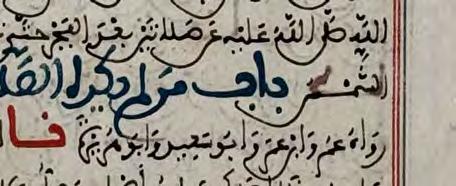 الله صلى الله عليه عن صلاتين بعد الفجر حتى
الشمس باب من لم يكره الصلا
رواه عمر وابن عمر وابو سعيد وابو هريرة